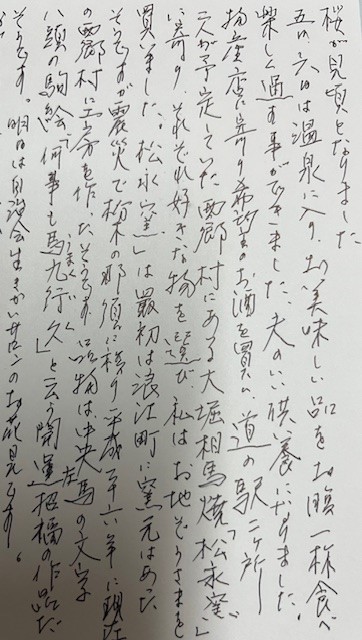 桜が見頃となりました
五日、六日は温泉に入り、お美味しい品をお腹一杯食べ
楽しく過す事ができました、夫のいい供養になりました。
物産店に寄り希望のお酒を買い、道の駅二ヶ所
二人が予定していた西郷村にある大堀相馬焼「松永窯」
に寄り、それぞれ好きな物を選び、私はお地ぞうさまを
買いました。「松永窯」は最初は浪江町に窯元はあった
そうですが震災で栃木の那須に移り平成二十六年に現在
の西郷村に工房を作ったそうです 品物は中央左馬の文字
八頭の駒絵「何事も馬九行久」と云う開運招福の作品だ
うまくいく
そうです。明日は自治会生きがいサロンのお花見です。